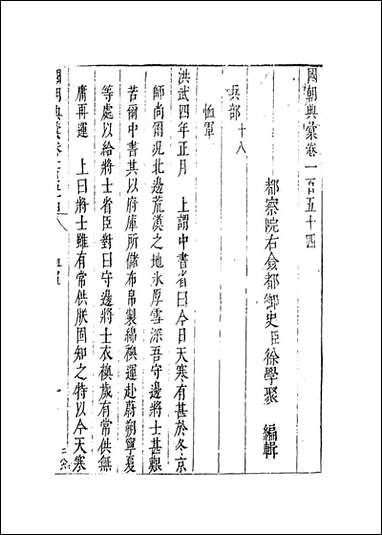 國朝典彙卷一百五十四
都察院右僉都御史臣徐學聚 編輯
兵部十八
恤軍
洪武四年正月 上謂中書省曰今日天寒有甚於冬京
師尚爾况北邊荒漠之地氷厚雪深吾守邊將士甚艱
苦爾中書其以府庫所儲布帛製綿襖運赴蔚朔寧夏
等處以給將士省臣對曰守邊將士衣襖歲有常供無
庸再運 上曰將士雖有常供朕固知之特以今天寒
國朝典彙卷一百五十四
恤軍
一